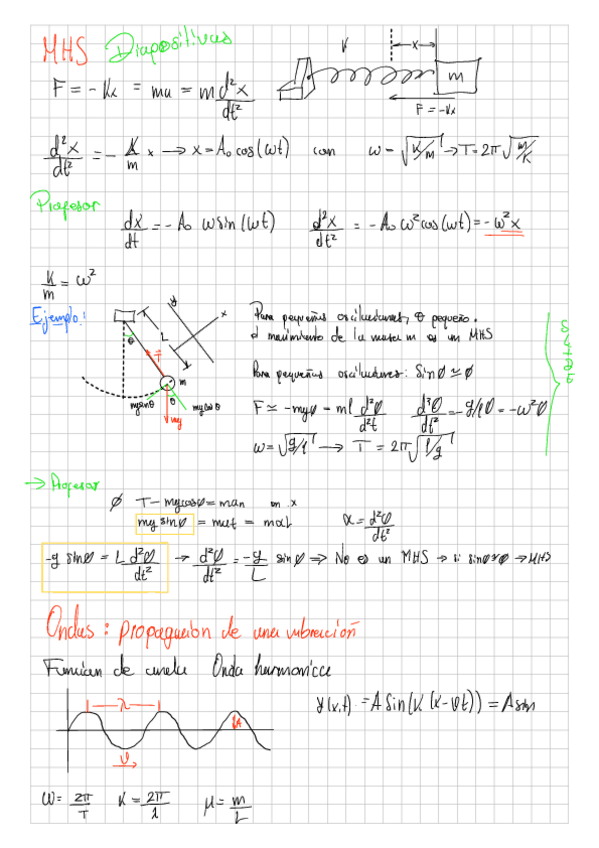 MHS Diapositivas
K x m
F = -Kx = ma = m d²x/dt²
F = -Kx
d²x/dt² = - K/m x → x = A₀ cos(ωt) con ω = √(K/m) → T = 2π √(m/K)
Profesor
dx/dt = - A₀ ω sin(ωt) d²x/dt² = - A₀ ω² cos(ωt) = -ω² x
K/m = ω²
Ejemplo:
y x L θ T m θ mg sinθ mg cosθ mg
Para pequeñas oscilaciones, θ pequeño.
el movimiento de la masa m es un MHS
Para pequeñas oscilaciones: Sin Ø ≃ Ø
F ≃ -mgø = ml d²Ø/d²t d²Ø/dt² = -g/l Ø = -ω²Ø
ω = √(g/l) → T = 2π √(l/g)
→ Profesor
Ø T - mg cosø = man en x
mg sinø = mat = mαL α = d²Ø/dt²
-g sinø = L d²Ø/dt² → d²Ø/dt² = -g/L sinø ⇒ No es un MHS → si sinø≈ø → MHS
Ondas: propagación de una vibración
Función de onda Onda harmonica
λ A v
y(x,t) = A Sin(K(x-vt)) = A sin
ω = 2π/T K = 2π/λ μ = m/L